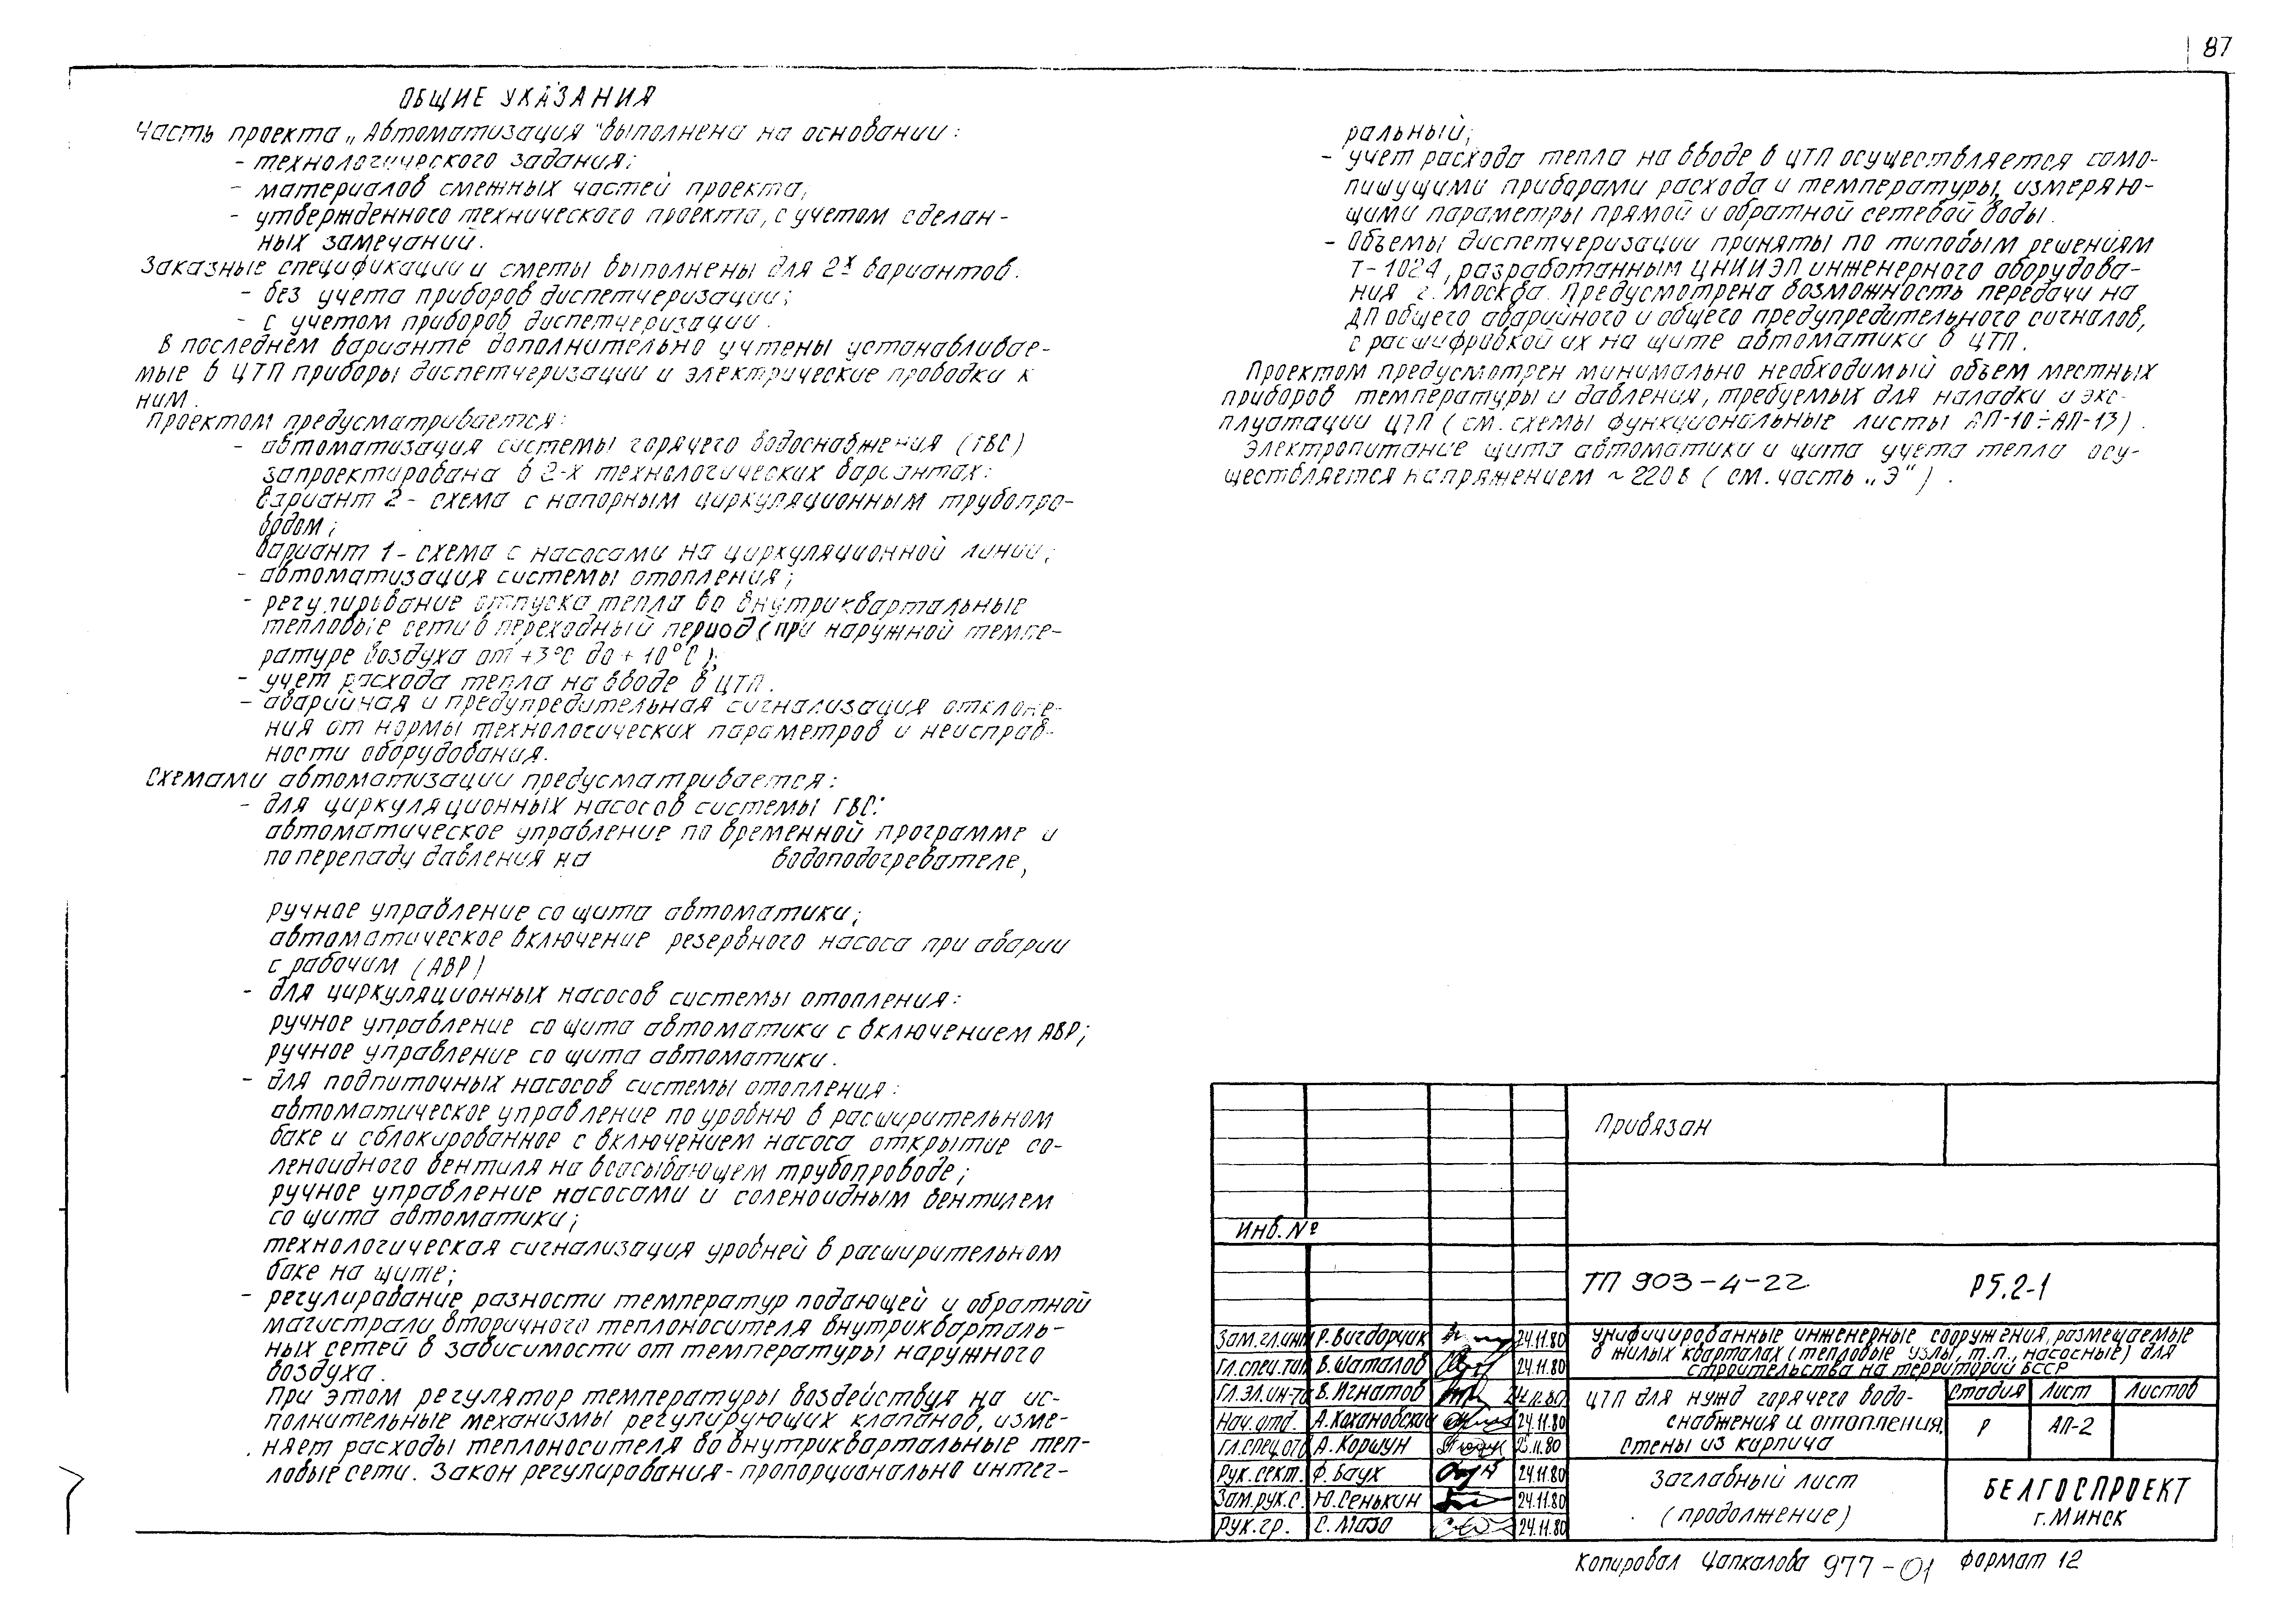 87
ОБЩИЕ УКАЗАНИЯ
Часть проекта „Автоматизация" выполнена на основании:
- технологического задания;
- материалов смежных частей проекта;
- утвержденного технического проекта, с учетом сделан-
ных замечаний.
Заказные спецификации и сметы выполнены для 2х вариантов.
- без учета приборов диспетчеризации;
- с учетом приборов диспетчеризации.
В последнем варианте дополнительно учтены устанавливае-
мые в ЦТП приборы диспетчеризации и электрические проводки к
ним.
Проектом предусматривается:
- автоматизация системы горячего водоснабжения (ГВС)
запроектирована в 2-х технологических вариантах:
вариант 2 - схема с напорным циркуляционным трубопро-
водом;
вариант 1 - схема с насосами на циркуляционной линии;
- автоматизация системы отопления;
- регулирование отпуска тепла во внутриквартальные
тепловые сети в переходный период (при наружной темпе-
ратуре воздуха от +3°С до +10°С);
- учет расхода тепла на вводе в ЦТП.
- аварийная и предупредительная сигнализация отклоне-
ния от нормы технологических параметров и неисправ-
ности оборудования.
Схемами автоматизации предусматривается:
- для циркуляционных насосов системы ГВС:
автоматическое управление по временной программе и
по перепаду давления на водоподогревателе,
ручное управление со щита автоматики;
автоматическое включение резервного насоса при аварии
с рабочим (АВР)
- для циркуляционных насосов системы отопления:
ручное управление со щита автоматики с включением АВР;
ручное управление со щита автоматики.
- для подпиточных насосов системы отопления:
автоматическое управление по уровню в расширительном
баке и сблокированное с включением насоса открытие со-
леноидного вентиля на всасывающем трубопроводе;
ручное управление насосами и соленоидным вентилем
со щита автоматики;
технологическая сигнализация уровней в расширительном
баке на щите;
- регулирование разности температур подающей и обратной
магистрали вторичного теплоносителя внутрикварталь-
ных сетей в зависимости от температуры наружного
воздуха.
При этом регулятор температуры воздействуя на ис-
полнительные механизмы регулирующих клапанов, изме-
няет расходы теплоносителя во внутриквартальные теп-
ловые сети. Закон регулирования - пропорционально интег-
ральный;
- учет расхода тепла на вводе в ЦТП осуществляется само-
пишущими приборами расхода и температуры, измеряю-
щими параметры прямой и обратной сетевой воды.
- Объемы диспетчеризации приняты по типовым решениям
Т-1024, разработанным ЦНИИЭП инженерного оборудова-
ния г. Москва. Предусмотрена возможность передачи на
ДП общего аварийного и общего предупредительного сигналов,
с расшифровкой их на щите автоматики в ЦТП.
Проектом предусмотрен минимально необходимый объем местных
приборов температуры и давления, требуемых для наладки и экс-
плуатации ЦТП (см. схемы функциональные листы АП-10÷АП-13).
Электропитание щита автоматики и щита учета тепла осу-
ществляется напряжением ~220в (см. часть „Э").
Привязан
Инв. №
ТП 903-4-22 Р5.2-1
Зам.гл.инж Р. Вигдорчик 24.11.80
Гл.спец.тип В. Шаталов 24.11.80
Гл.эл.ин-та В. Игнатов 24.11.80
Нач. отд. А. Кохановский 24.11.80
Гл.спец.отд А. Коршун 25.11.80
Рук.сект. Ф. Баух 24.11.80
Зам.рук.с. Ю. Сенькин 24.11.80
Рук.гр. С. Мазо 24.11.80
Унифицированные инженерные сооружения, размещаемые
в жилых кварталах (тепловые узлы, т.п., насосные) для
строительства на территории БССР
ЦТП для нужд горячего водо-
снабжения и отопления.
Стены из кирпича
Стадия Лист Листов
Р АП-2
Заглавный лист
(продолжение)
БЕЛГОСПРОЕКТ
г. Минск
Копировал Цапкалова 977-01 Формат 12